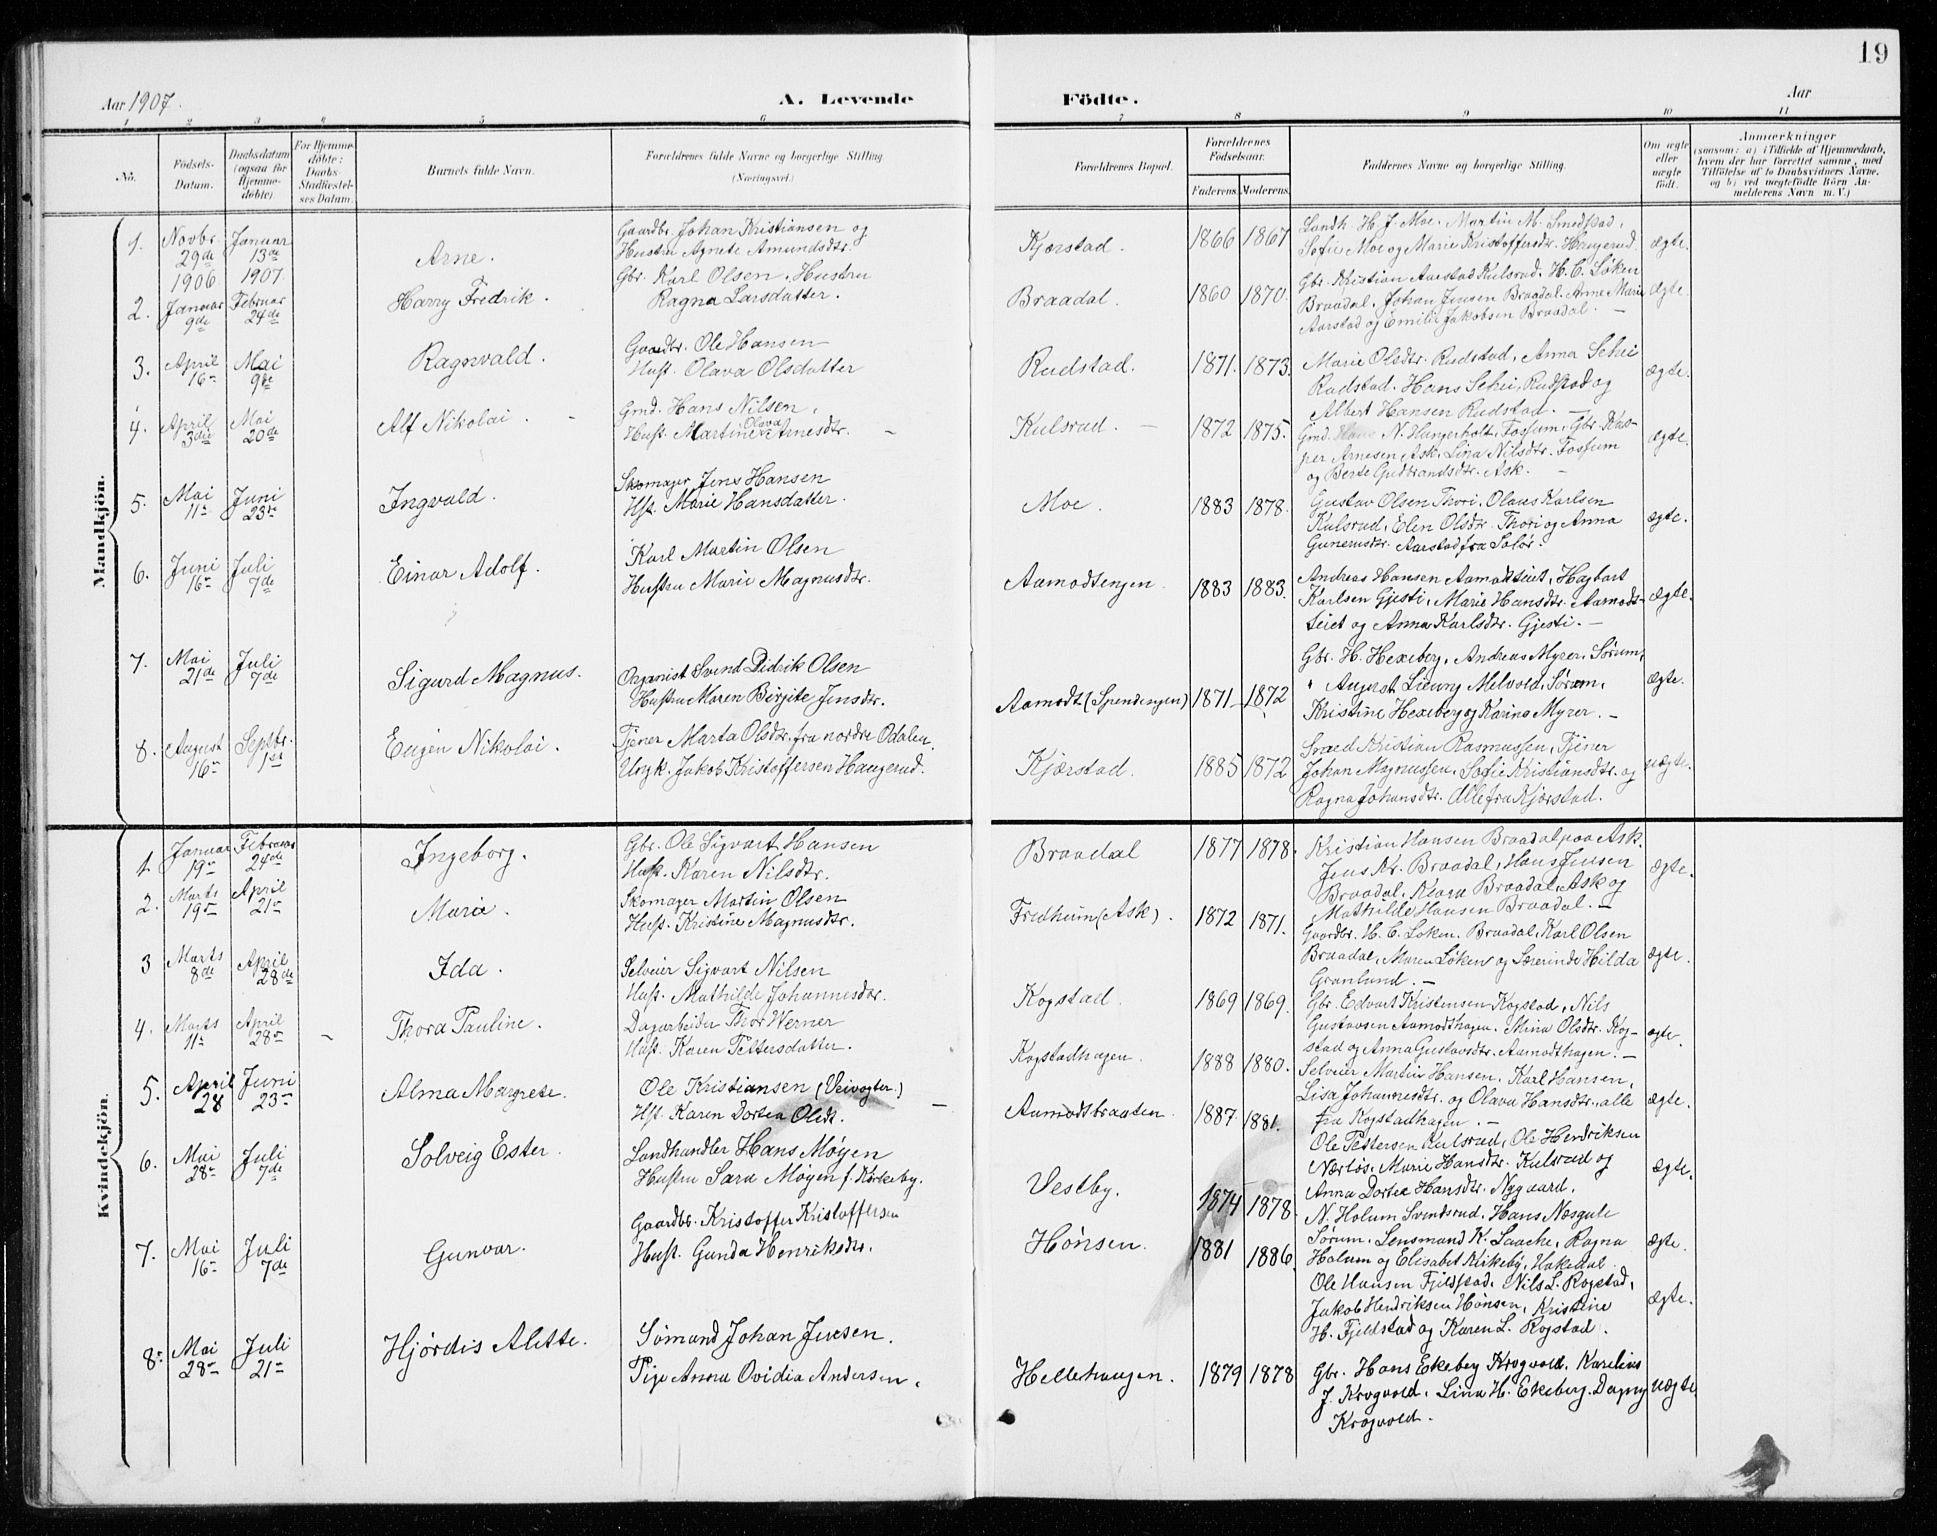 19
Aar 1907.
A. Levende Födte.
Aar
1 2 3 4 5 6 7 8 9 10 11
No.
Födsels-
Datum.
Daabsdatum
(ogsaa for
Hjemme-
döbte).
For Hjemme-
döbte:
Daabs-
Stadfæstel-
ses Datum.
Barnets fulde Navn.
Forældrenes fulde Navne og borgerlige Stilling
(Næringsvei.)
Forældrenes Bopæl.
Forældrenes
Födselsaar.
Faderens. Moderens.
Faddernes Navne og borgerlige Stilling.
Om ægte
eller
uægte
födt.
Anmærkninger
(saasom: a) i Tilfælde af Hjemmedaab,
hvem der har forrettet samme, med
Tilföielse af to Daabsvidners Navne,
og b) ved uægtefödte Börn An-
melderens Navn m. V.)
Mandkjön.
1.
Novbr
29de
1906
Januar
13de
1907
Arne.
Gaardbr. Johan Kristiansen og
Hustru Agnete Amundsdtr.
Kjærstad.
1866 1867
Landh. H. J. Moe. Martin M. Smedstad,
Sofie Moe og Marie Kristoffersdtr. Haugerud.
ægte.
2.
Januar
9de
Februar
24de
Harry Fredrik.
Gbr. Karl Olsen, Hustru
Ragna Larsdatter.
Braadal.
1860 1870.
Gbr. Kristian Aarstad Kulsrud, H. C. Løken
Braadal, Johan Jensen Braadal, Anne Marie
Aarstad og Emilie Jakobsen Braadal. —
ægte.
3.
April
16de
Mai
9de
Ragnvald.
Gaardbr. Ole Hansen
Hust. Olava Olsdatter
Rudstad.
1871. 1873.
Marie Olsdtr. Rudstad, Anna Schei
Rudstad. Hans Schei, Rudstad og
Albert Hansen Rudstad. —
ægte.
4.
April
3die
Mai
20de
Alf Nikolai.
Grnd. Hans Nilsen,
Hust. Martine Olava Arnesdtr. —
Kulsrud. —
1872 1875.
Grnd. Hans N. Hungerholt, Fossum, Gbr. Kas-
per Arnesen Ask, Lina Nilsdtr. Fossum
og Berte Gudbrandsdtr. Ask. —
ægte.
5.
Mai
11te
Juni
23de
Ingvald.
Skomager Jens Hansen
Hst. Marie Hansdatter.
Moe.
1883 1878.
Gustav Olsen Thori, Olaus Karlsen
Kulsrud, Elen Olsdtr. Thori og Anna
Gunerusdtr. Aarstad fra Solør.
ægte.
6.
Juni
16de
Juli
7de
Einar Adolf.
Karl Martin Olsen
Hustru Marie Magnusdtr.
Aamodtengen.
1883 1883.
Andreas Hansen Aamodteiet, Hagbart
Karlsen Gjesti, Marie Hansdtr. Aamodt-
teiet og Anna Karlsdtr. Gjesti. —
ægte.
7.
Mai
21de
Juli
7de
Sigurd Magnus.
Organist Svend Didrik Olsen
Hustru Maren Birgite Jensdtr.
Aamodt (Spendengen)
1871 1872
Gbr. H. Hexeberg, Andreas Myrer, Sørum,
" August Lieung Melvold, Sørum,
Kristine Hexeberg og Karina Myrer. —
ægte.
8.
August
16de
Septbr.
1st
Eugen Nikolai.
Tjener Marta Olsdtr. fra nordre Odalen.
Ungk. Jakob Kristoffersen Haugerud.
Kjærstad.
1885 1872
Smed Kristian Rasmussen, Tjener
Johan Magnussen, Sofie Kristiansdtr. og
Ragna Johansdtr. Alle fra Kjærstad.
uægte.
Kvindekjön.
1.
Januar
19de
Februar
24de
Ingeborg.
Gbr. Ole Sigvart Hansen
Hust. Karen Nilsdtr.
Braadal
1877 1878.
Kristian Hansen Braadal paa Ask,
Jens Kr. Braadal, Hans Jensen
Braadal, Klara Braadal, Ask og
Mathilde Hansen Braadal. —
ægte.
2.
Marts
19de
April
21de
Marie.
Skomager Martin Olsen
Hust. Kristine Magnusdtr.
Fredheim (Ask).
1872 1871.
Gaardbr. H. C. Løken, Braadal, Karl Olsen
Braadal, Maren Løken og Lærerinde Hilda
Granlund. —
ægte.
3
Marts
8de
April
28de
Ida.
Selveier Sigvart Nilsen
Hust. Mathilde Johannesdtr.
Kogstad.
1869 1869.
Gbr. Edvart Kristensen Kogstad, Nils
Gustavsen Aamodthagen, Mina Olsdtr. Kog-
stad og Anna Gustavsdtr. Aamodthagen. —
ægte.
4.
Marts
11te
April
28de
Thora Pauline.
Dagarbeider Thor Werner
Hust. Karen Pettersdatter.
Kogstadhagen.
1888 1880.
Selveier Martin Hansen, Karl Hansen,
Lisa Johannesdtr. og Olava Hansdtr., alle
fra Kogstadhagen. —
ægte.
5.
April
28
Juni
23de
Alma Margrete.
Ole Kristiansen (Veivogter.)
Hst. Karen Dortea Olsdt. —
Aamodtbraaten.
1887 1881.
Ole Pettersen Kulsrud, Ole Hendriksen
Nærløs, Marie Hansdtr. Kulsrud og
Anna Dortea Hansdtr. Nygaard.
ægte.
6.
Mai
28de
Juli
7de
Solveig Ester.
Landhandler Hans Møyen
Hustru Sara Møyen f. Kirkeby.
Vestby.
1874 1878.
N. Holum Svendsrud, Hans Næsgule
Sørum, Lensmand K. Laache, Ragna
Holum og Elisabet Kirkeby, Hakedal
ægte.
7.
Mai
16de
Juli
7de
Gunvar.
Gaardbr. Kristoffer Kristoffersen
Hust. Gunda Henriksdtr.
Hønsen.
1881 1886.
Ole Hansen Fjeldstad, Nils L. Rogstad,
Jakob Hendriksen Hønsen, Kristine
H. Fjeldstad og Karen L. Rogstad.
ægte.
8.
Mai
28de
Juli
21de
Hjørdis Alette.
Sømand Johan Jensen.
Pige Anna Ovidia Andersen.
Hellehaugen.
1879 1878
Gbr. Hans Ekeberg Krogvold, Karelius
J. Krogvold, Lina H. Ekeberg, Dagny
Krogvold.
uægte